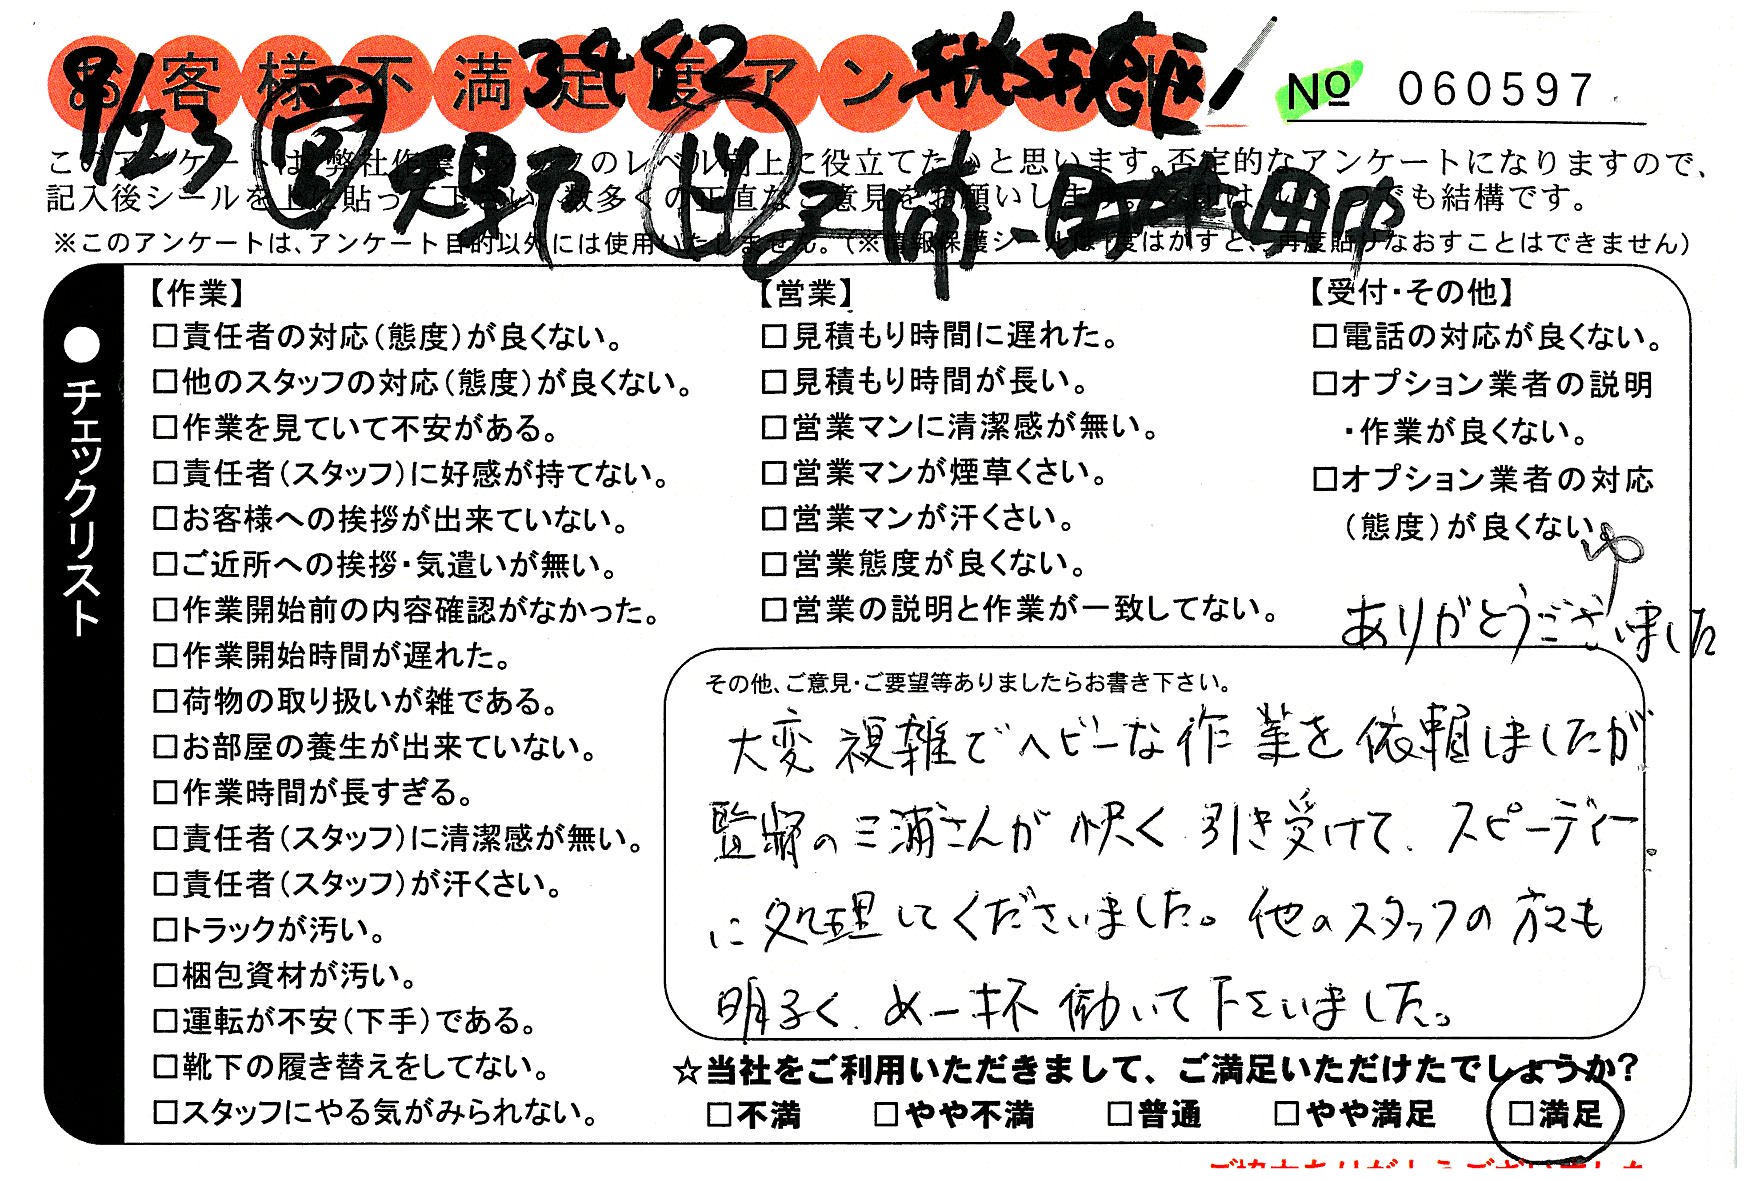 お客様不満足度アン
3482
9/23
№ 060597
このアンケートは、弊社作業スタッフのレベル向上に役立てたいと思います。否定的なアンケートになりますので、
記入後シールを上に貼って下さい。数多くの正直なご意見をお願いします。
※このアンケートは、アンケート目的以外には使用いたしません。(※情報保護シールは1度はがすと、再度貼りなおすことはできません)
矢野 三浦、田中
●チェックリスト
【作業】
□責任者の対応(態度)が良くない。
□他のスタッフの対応(態度)が良くない。
□作業を見ていて不安がある。
□責任者(スタッフ)に好感が持てない。
□お客様への挨拶が出来ていない。
□ご近所への挨拶・気遣いが無い。
□作業開始前の内容確認がなかった。
□作業開始時間が遅れた。
□荷物の取り扱いが雑である。
□お部屋の養生が出来ていない。
□作業時間が長すぎる。
□責任者(スタッフ)に清潔感が無い。
□責任者(スタッフ)が汗くさい。
□トラックが汚い。
□梱包資材が汚い。
□運転が不安(下手)である。
□靴下の履き替えをしてない。
□スタッフにやる気がみられない。
【営業】
□見積もり時間に遅れた。
□見積もり時間が長い。
□営業マンに清潔感が無い。
□営業マンが煙草くさい。
□営業マンが汗くさい。
□営業態度が良くない。
□営業の説明と作業が一致してない。
【受付・その他】
□電話の対応が良くない。
□オプション業者の説明
・作業が良くない。
□オプション業者の対応
(態度)が良くない。
ありがとうございました
その他、ご意見・ご要望等ありましたらお書き下さい。
大変複雑でヘビーな作業を依頼しましたが
監督の三浦さんが快く引き受けて、スピーディー
に処理してくださいました。他のスタッフの方々も
明るく、め一杯働いて下さいました。
☆当社をご利用いただきまして、ご満足いただけたでしょうか?
□不満 □やや不満 □普通 □やや満足 □満足
ご協力ありがとうございました